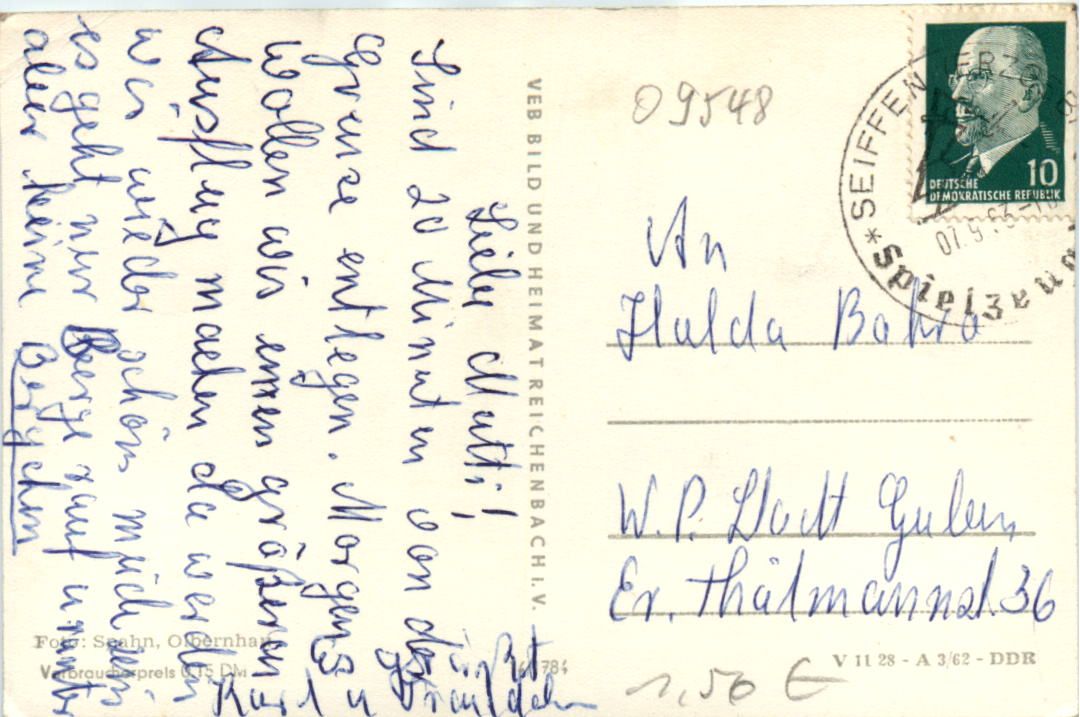 Liebe Mutti!
Sind 20 Minuten von der
Grenze entlegen. Morgen
wollen wir einen größeren
Ausflug machen da werden
wir wieder schön müde sein
es geht nur Berge rauf u. runter
aber keine Bergchen
Es
grüßt
Karl u
VEB BILD UND HEIMAT REICHENBACH i. V.
Foto: Spahn, Olbernhau
Verbraucherpreis 0,15 DM
09548
SEIFFEN
*Spielzeug
07.9.63-10
DEUTSCHE
DEMOKRATISCHE REPUBLIK
10
An
Hulda Bahro
W. P. Stadt Guben
Er. Thälmannst. 36
V 11 28 - A 3/62 - DDR
1,50 €